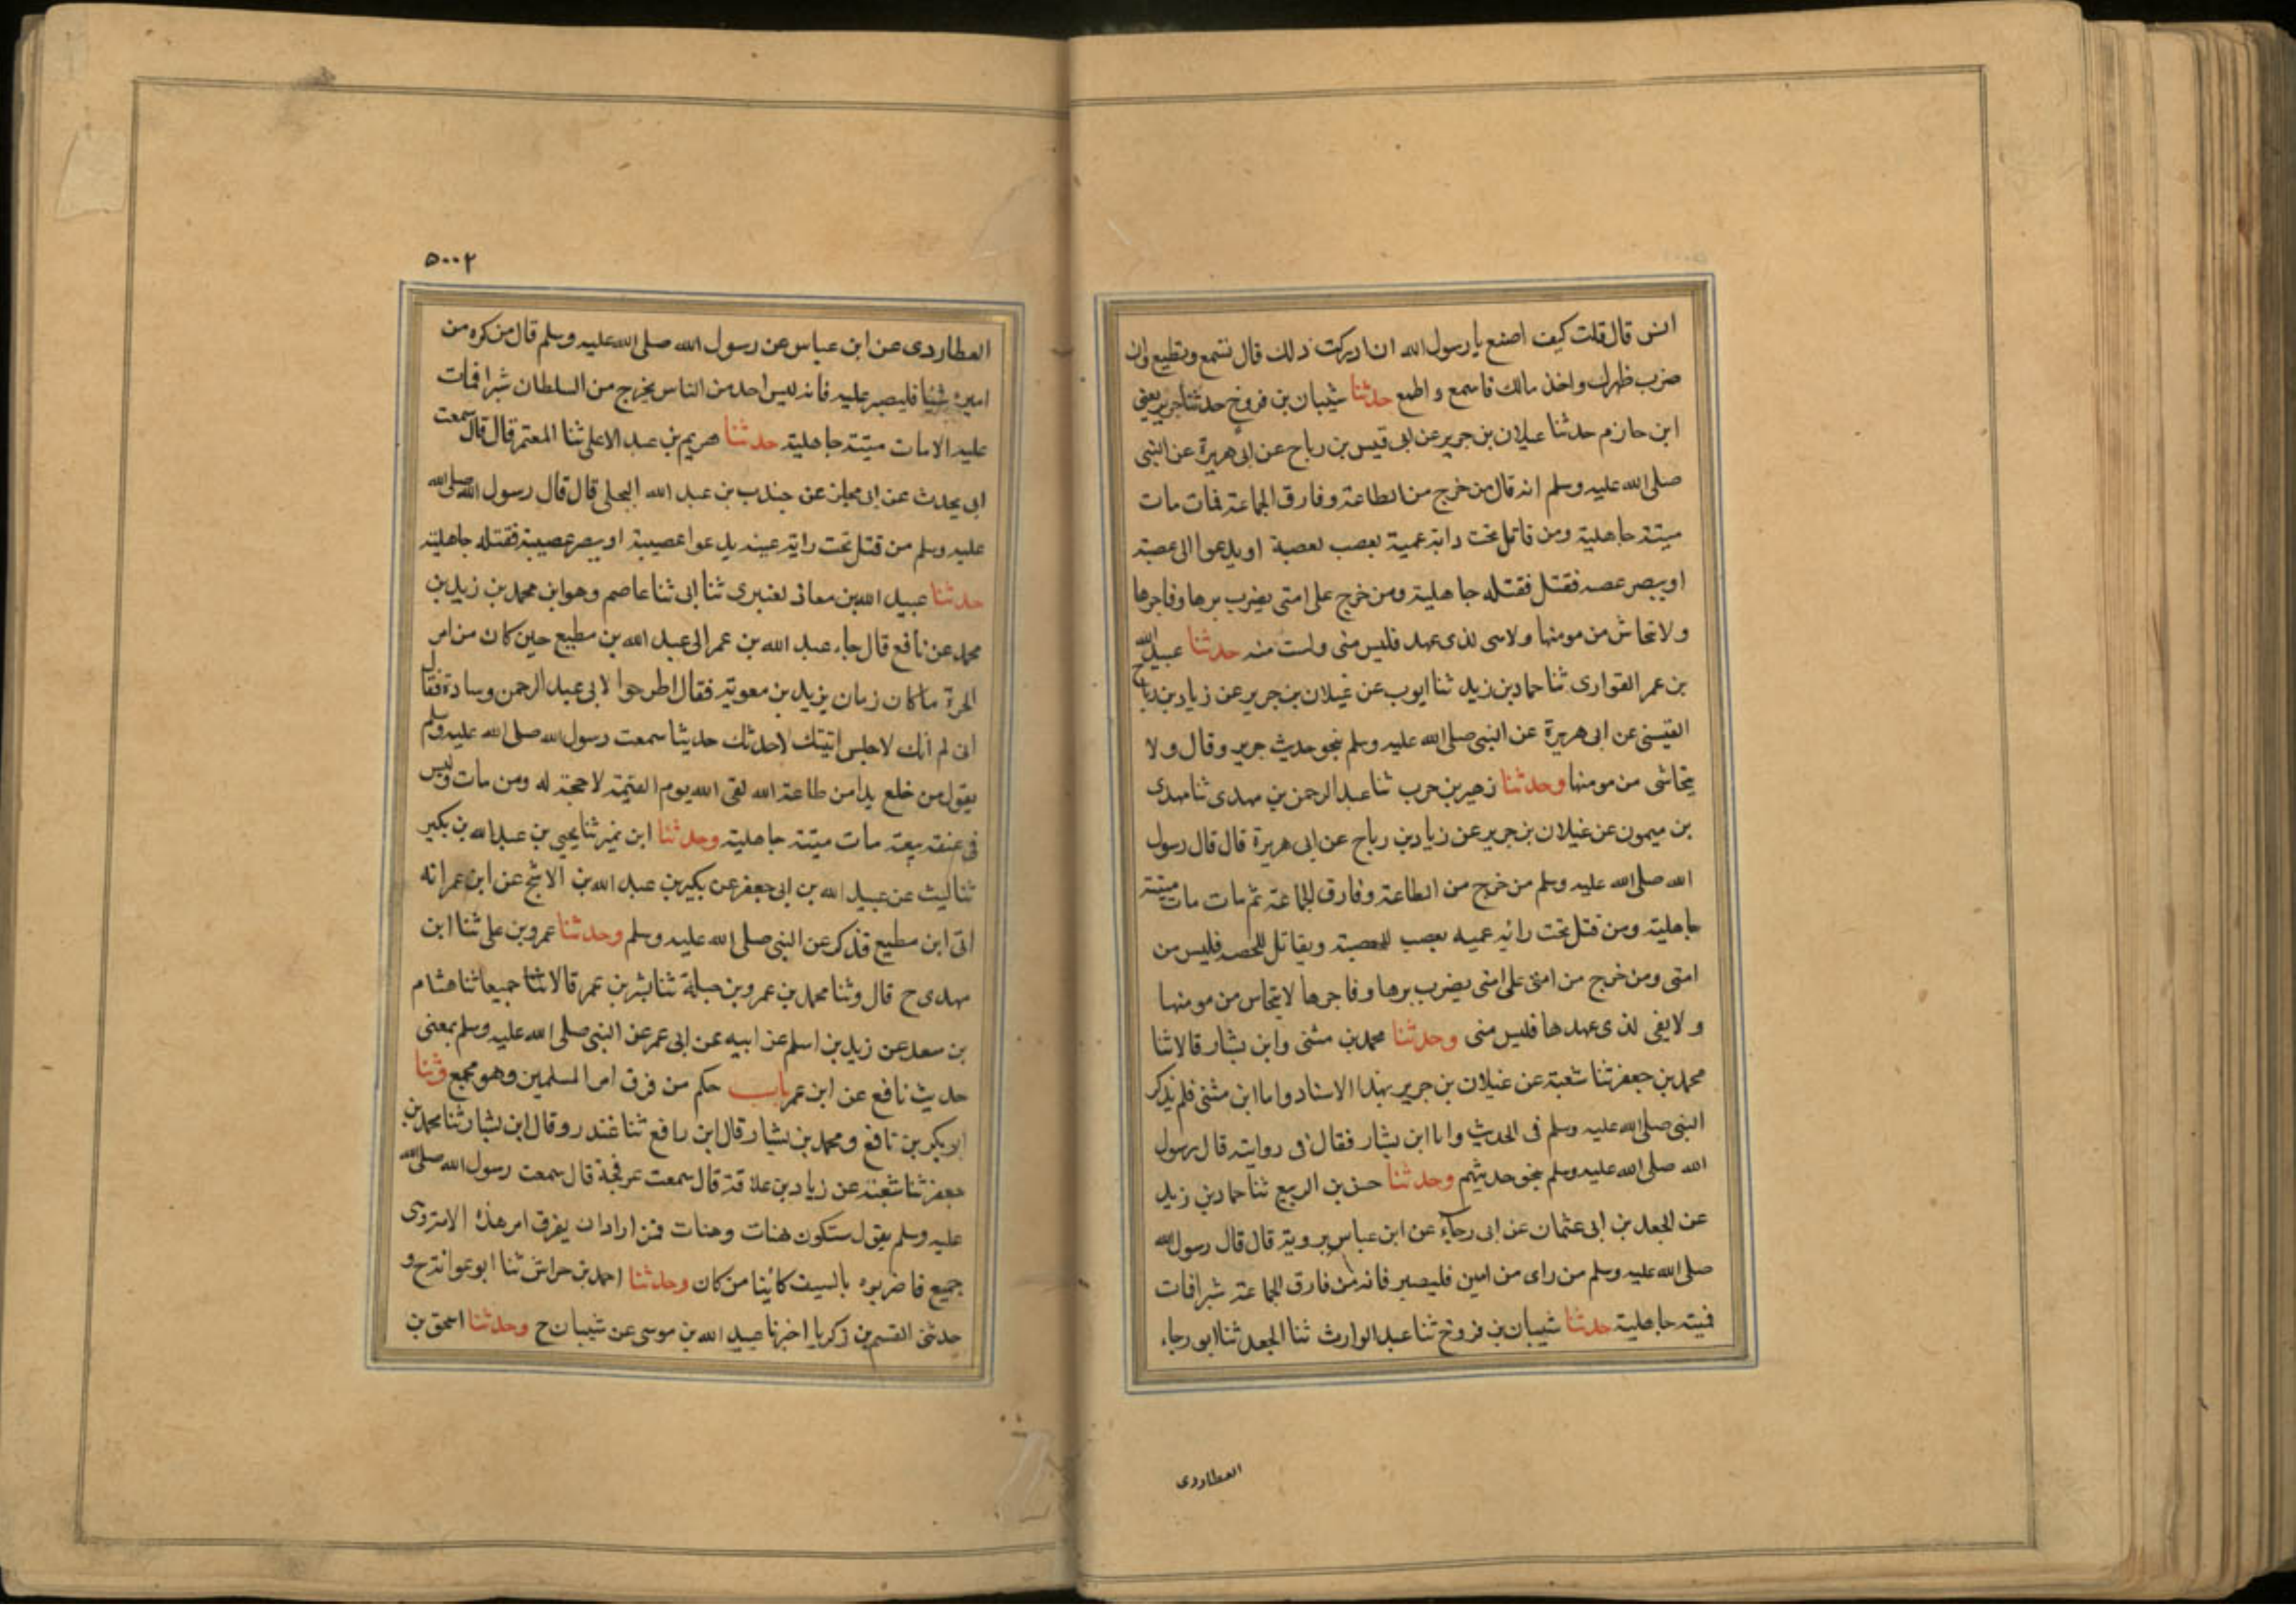 انس قال قلت كيف اصنع يا رسول الله ان ادركت ذلك قال تسمع وتطيع وان
ضرب ظهرك واخذ مالك فاسمع واطع حدثنا شيبان بن فروخ حدثنا جرير يعني
ابن حازم حدثنا غيلان بن جرير عن ابى قيس بن رباح عن ابى هريرة عن النبى
صلى الله عليه وسلم انه قال من خرج من الطاعة وفارق الجماعة فمات مات
ميتة جاهلية ومن قاتل تحت راية عمية يعصب لعصبة او يدعوا الى عصبة
او ينصر عصبه فقتل فقتله جاهلية ومن خرج على امتى يضرب برها وفاجرها
ولا تحاش من مومنها ولا لذى عهد فليس منى ولست منه حدثنا عبيد الله
بن عمر القوارى ثنا حماد بن زيد ثنا ايوب عن غيلان بن جرير عن زياد بن رباح
القيسى عن ابى هريرة عن النبى صلى الله عليه وسلم نحو حديث جرير وقال ولا
يتحاشى من مومنها وحدثنا زهير بن حرب ثنا عبد الرحمن بن مهدى ثنا مهدى
بن ميمون عن غيلان بن جرير عن زياد بن رباح عن ابى هريرة قال قال رسول
الله صلى الله عليه وسلم من خرج من الطاعة وفارق الجماعة ثم مات مات ميتة
جاهلية ومن قتل تحت راية عميه يعصب للعصبة ويقاتل للعصبه فليس من
امتى ومن خرج من امتى على امتى يضرب برها وفاجرها لا يتحاس من مومنها
ولا يفى لذى عهدها فليس منى وحدثنا محمد بن مثنى وابن بشار قالا ثنا
محمد بن جعفر ثنا شعبة عن غيلان بن جرير بهذا الاسناد واما ابن مثنى فلم يذكر
النبى صلى الله عليه وسلم فى الحديث واما ابن بشار فقال فى روايته قال رسول
الله صلى الله عليه وسلم نحو حديثهم وحدثنا حسن بن الربيع ثنا حماد بن زيد
عن الجعد بن ابى عثمان عن ابى رجاء عن ابن عباس يرويه قال قال رسول الله
صلى الله عليه وسلم من راى من امير فليصبر فانه من فارق الجماعة شبرا فمات
فميتة جاهلية حدثنا شيبان بن فروخ ثنا عبد الوارث ثنا الجعد ثنا ابو رجاء
العطاردى
٥٠٠٢
العطاردى عن ابن عباس عن رسول الله صلى الله عليه وسلم قال من كره من
اميره شيئا فليصبر عليه فانه ليس احد من الناس يخرج من السلطان شبرا فمات
عليه الا مات ميتة جاهلية حدثنا هريم بن عبد الاعلى ثنا المعتمر قال قال سمعت
ابى يحدث عن ابى مجلز عن جندب بن عبد الله البجلى قال قال رسول الله صلى الله
عليه وسلم من قتل تحت راية عمية يدعوا عصبية او ينصر عصبية فقتله جاهلية
حدثنا عبيد الله بن معاذ لعنبرى ثنا ابى ثنا عاصم وهو ابن محمد بن زيد بن
محمد عن نافع قال جاء عبد الله بن عمر الى عبد الله بن مطيع حين كان من امر
الحرة ما كان زمان يزيد بن معوية فقال اطرحوا لابى عبد الرحمن وسادة فقال
انى لم اتك لاجلس اتيتك لاحدثك حديثا سمعت رسول الله صلى الله عليه وسلم
يقول من خلع يدا من طاعة الله لقى الله يوم القيمة لا حجة له ومن مات وليس
فى عنقه بيعة مات ميتة جاهلية وحدثنا ابن نمير ثنا يحيى بن عبد الله بن بكير
ثنا ليث عن عبيد الله بن ابى جعفر عن بكير بن عبد الله بن الاشج عن ابن عمر انه
اتى ابن مطيع فذكر عن النبى صلى الله عليه وسلم وحدثنا عمرو بن على ثنا ابن
مهدى ح قال وثنا محمد بن عمرو بن جبلة ثنا بشر بن عمر قالا ثنا جميعا ثنا هشام
بن سعد عن زيد بن اسلم عن ابيه عن ابى عمر عن النبى صلى الله عليه وسلم بمعنى
حديث نافع عن ابن عمر باب حكم من فرق امر المسلمين وهو مجمع وثنا
ابو بكر بن نافع ومحمد بن بشار قال ابن رافع ثنا غندر وقال ابن بشار ثنا محمد بن
جعفر ثنا شعبة عن زياد بن علاقة قال سمعت عرفجة قال سمعت رسول الله صلى الله
عليه وسلم يقول ستكون هنات وهنات فمن اراد ان يفرق امر هذه الا
جميع فاضربوه بالسيف كائنا من كان وحدثنا احمد بن حراش ثنا ابو عوانة ح و
حدثنى القسم بن زكريا اخبرنا عبيد الله بن موسى عن شيبان ح وحدثنا اسحق بن